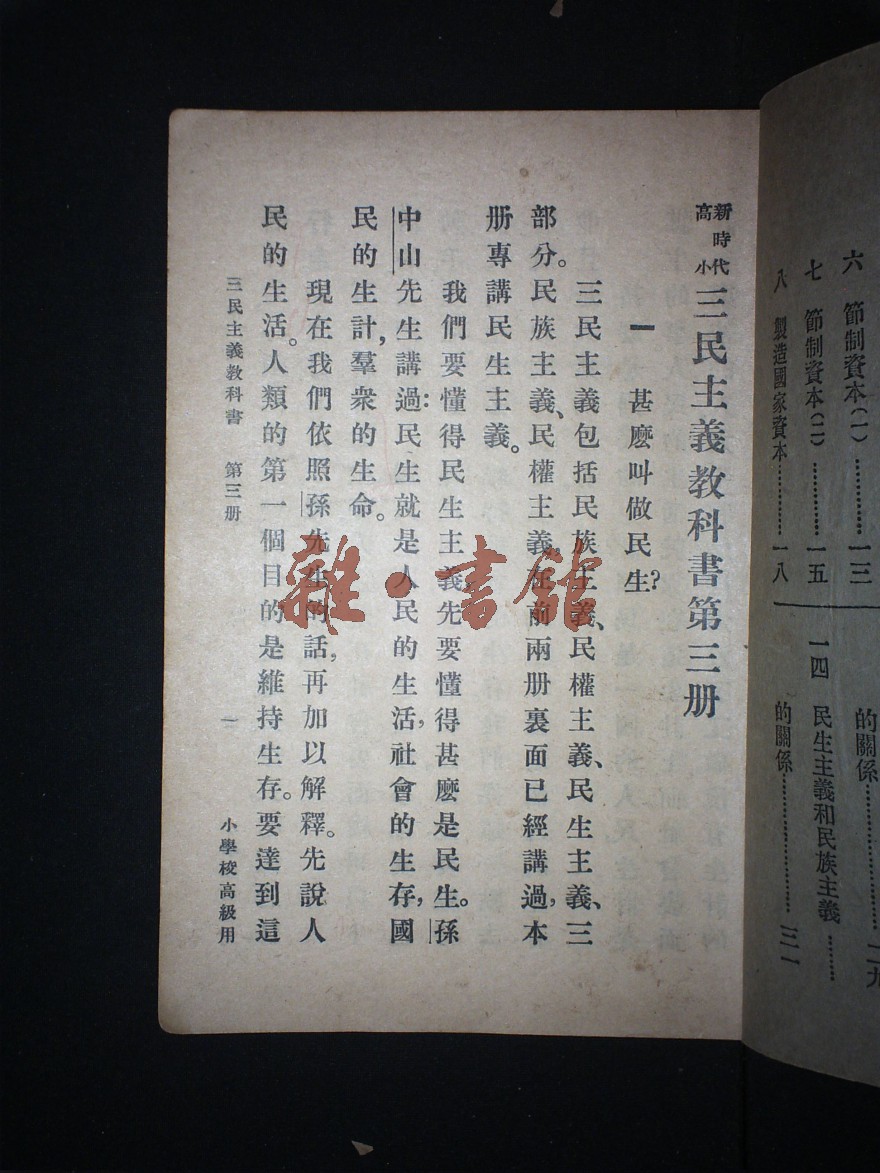 六 節制資本(一)…………一三
七 節制資本(二)…………一五
八 製造國家資本…………一八
的關係…………二九
一四 民生主義和民族主義……
的關係…………三一
新時代
高小
三民主義教科書第三册
一 甚麽叫做民生?
三民主義包括民族主義、民權主義、民生主義、三
部分。民族主義、民權主義、在前兩册裏面已經講過,本
册專講民生主義。
我們要懂得民生主義,先要懂得甚麽是民生。孫
中山先生講過:民生就是人民的生活,社會的生存,國
民的生計,羣衆的生命。
現在我們依照孫先生的話,再加以解釋。先說人
民的生活。人類的第一個目的是維持生存。要達到這
三民主義教科書 第三册 一 小學校高級用
雜·書館